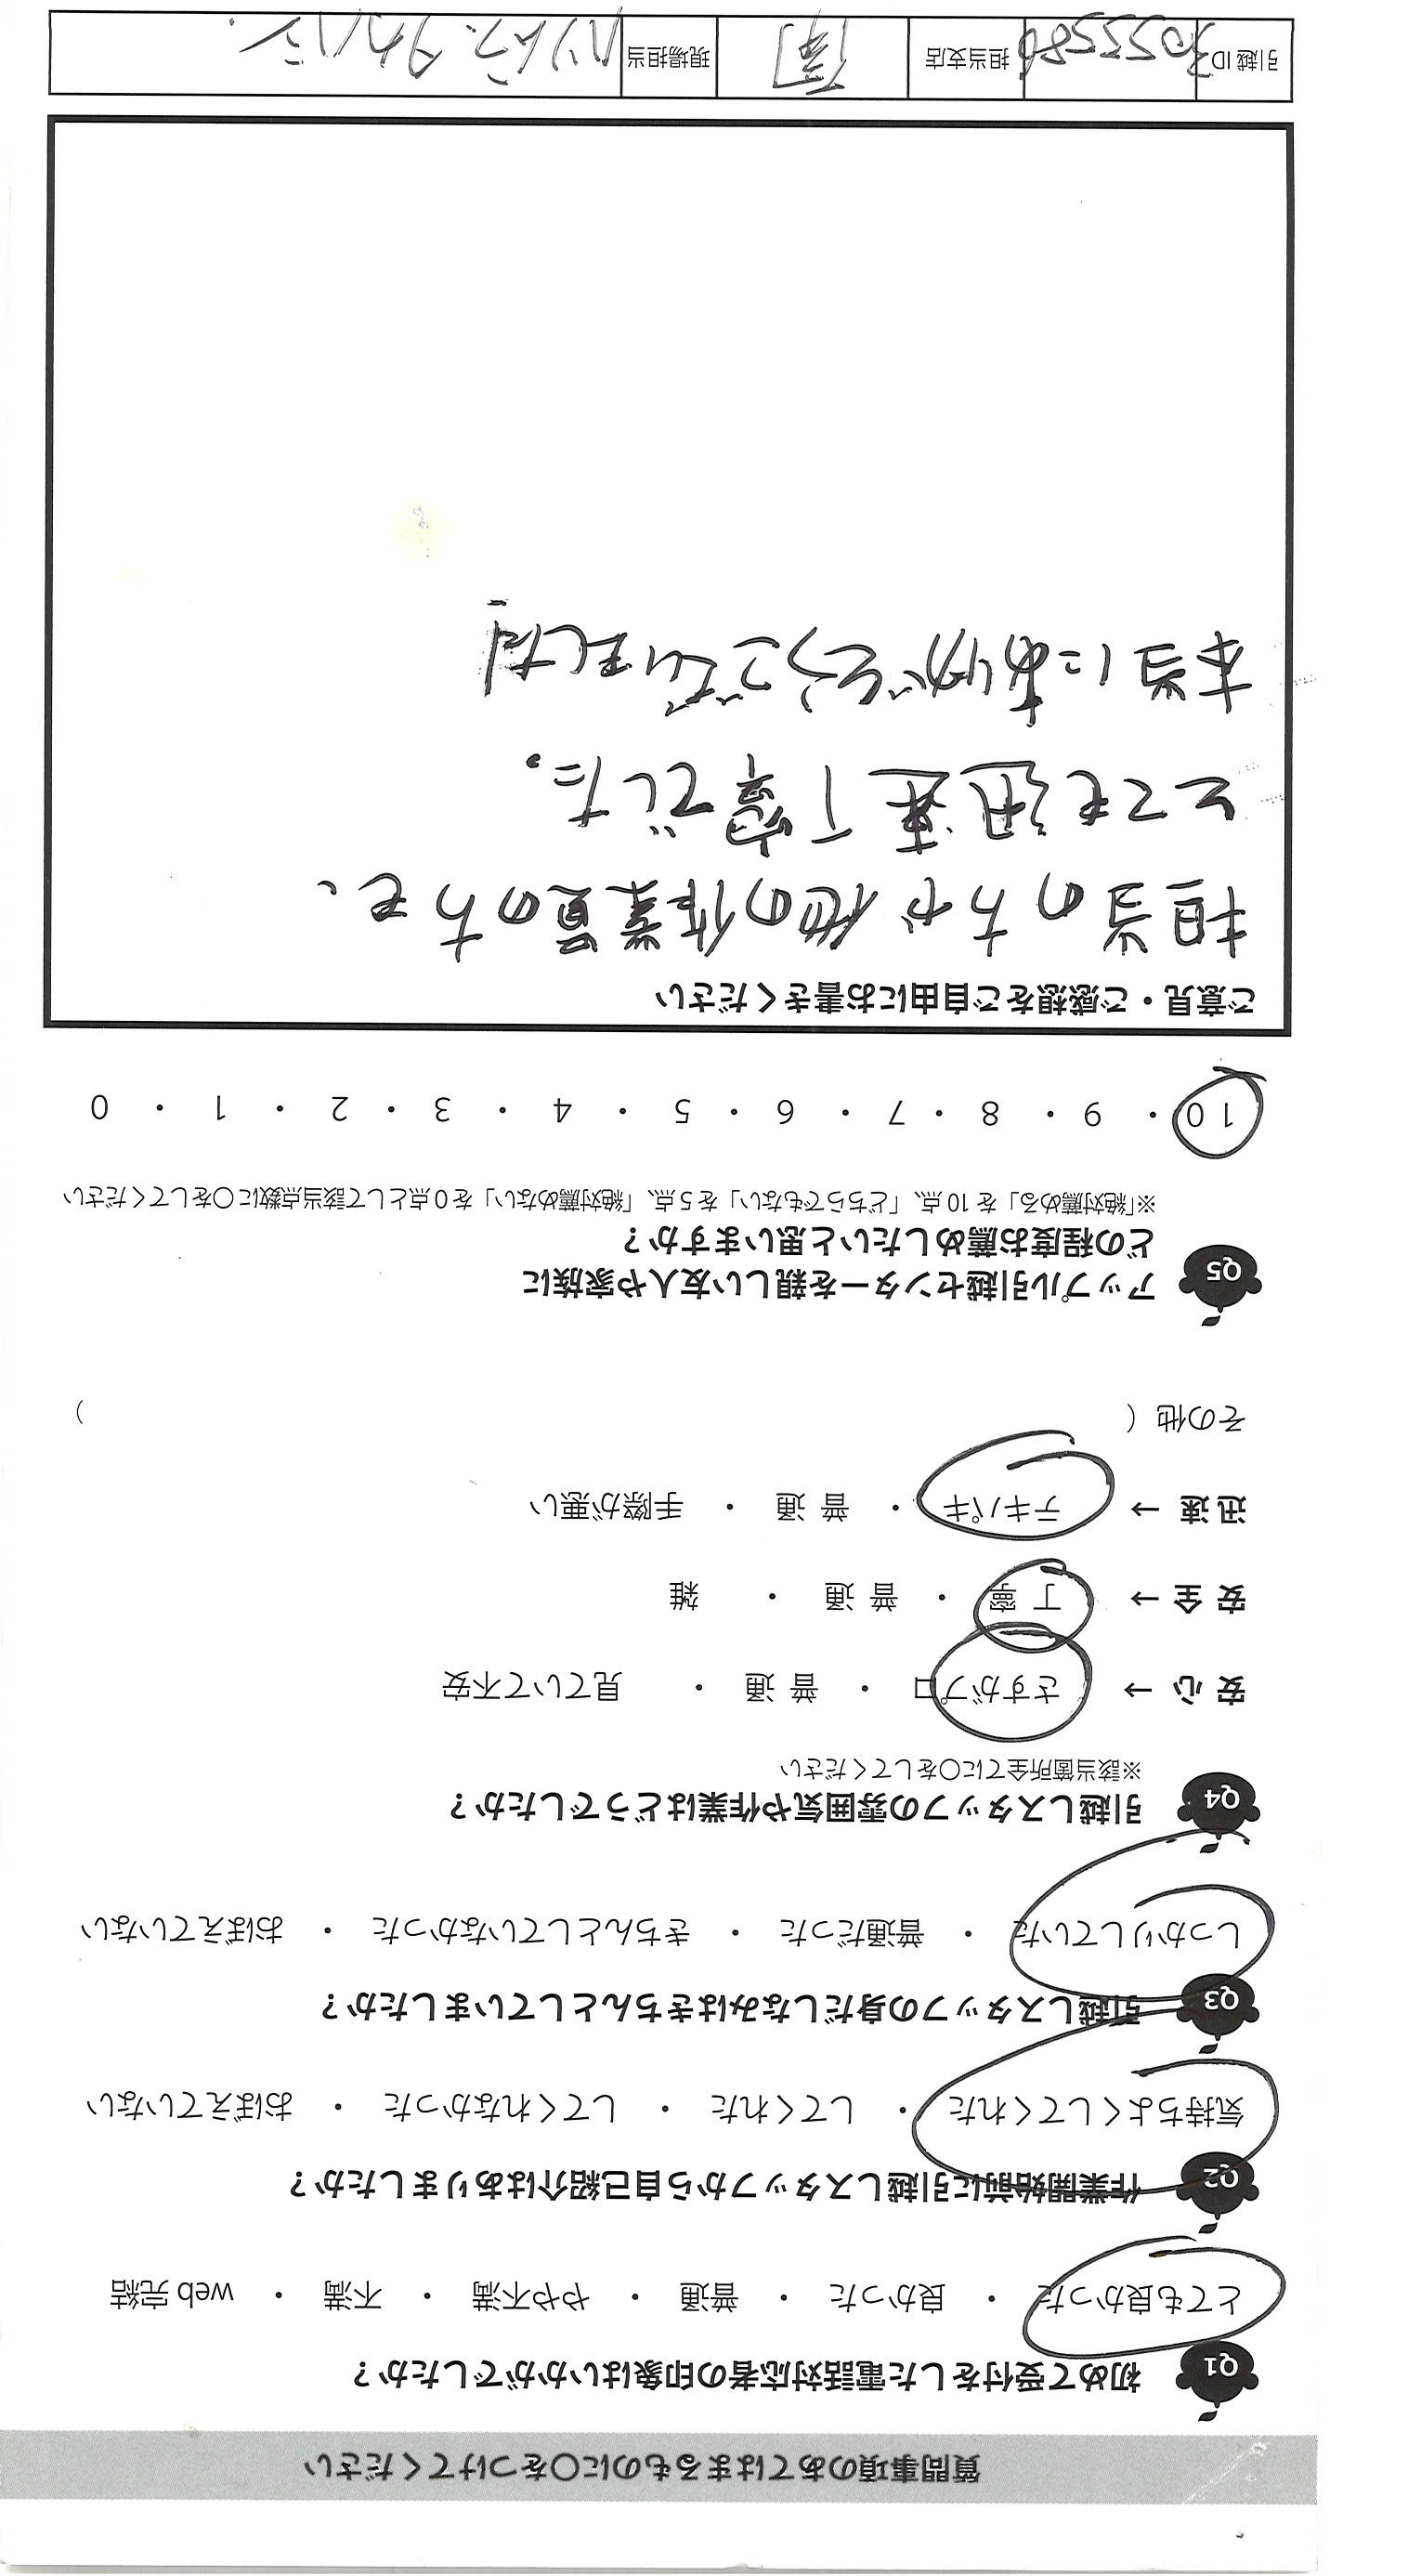 質問事項のあてはまるものに○をつけてください
Q1 初めて受付をした電話対応者の印象はいかがでしたか？
とても良かった ・ 良かった ・ 普通 ・ やや不満 ・ 不満 ・ web 完結
Q2 作業開始前に引越しスタッフから自己紹介はありましたか？
気持ちよくしてくれた ・ してくれた ・ してくれなかった ・ おぼえていない
Q3 引越しスタッフの身だしなみはきちんとしていましたか？
しっかりしていた ・ 普通だった ・ きちんとしていなかった ・ おぼえていない
Q4 引越しスタッフの雰囲気や作業はどうでしたか？
※該当箇所全てに○をしてください
安 心 → さすがプロ ・ 普 通 ・ 見ていて不安
安 全 → 丁 寧 ・ 普 通 ・ 雑
迅 速 → テキパキ ・ 普 通 ・ 手際が悪い
その他（ ）
Q5 アップル引越センターを親しい友人や家族に
どの程度お薦めしたいと思いますか？
※「絶対薦める」を 10 点、「どちらでもない」を 5 点、「絶対薦めない」を 0 点として該当点数に○をしてください
10 ・ 9 ・ 8 ・ 7 ・ 6 ・ 5 ・ 4 ・ 3 ・ 2 ・ 1 ・ 0
ご意見・ご感想をご自由にお書きください
担当の方や他の作業員の方も、
とても迅速丁寧でした。
本当にありがとうございました
引越 ID 3055586 担当支店 現場担当